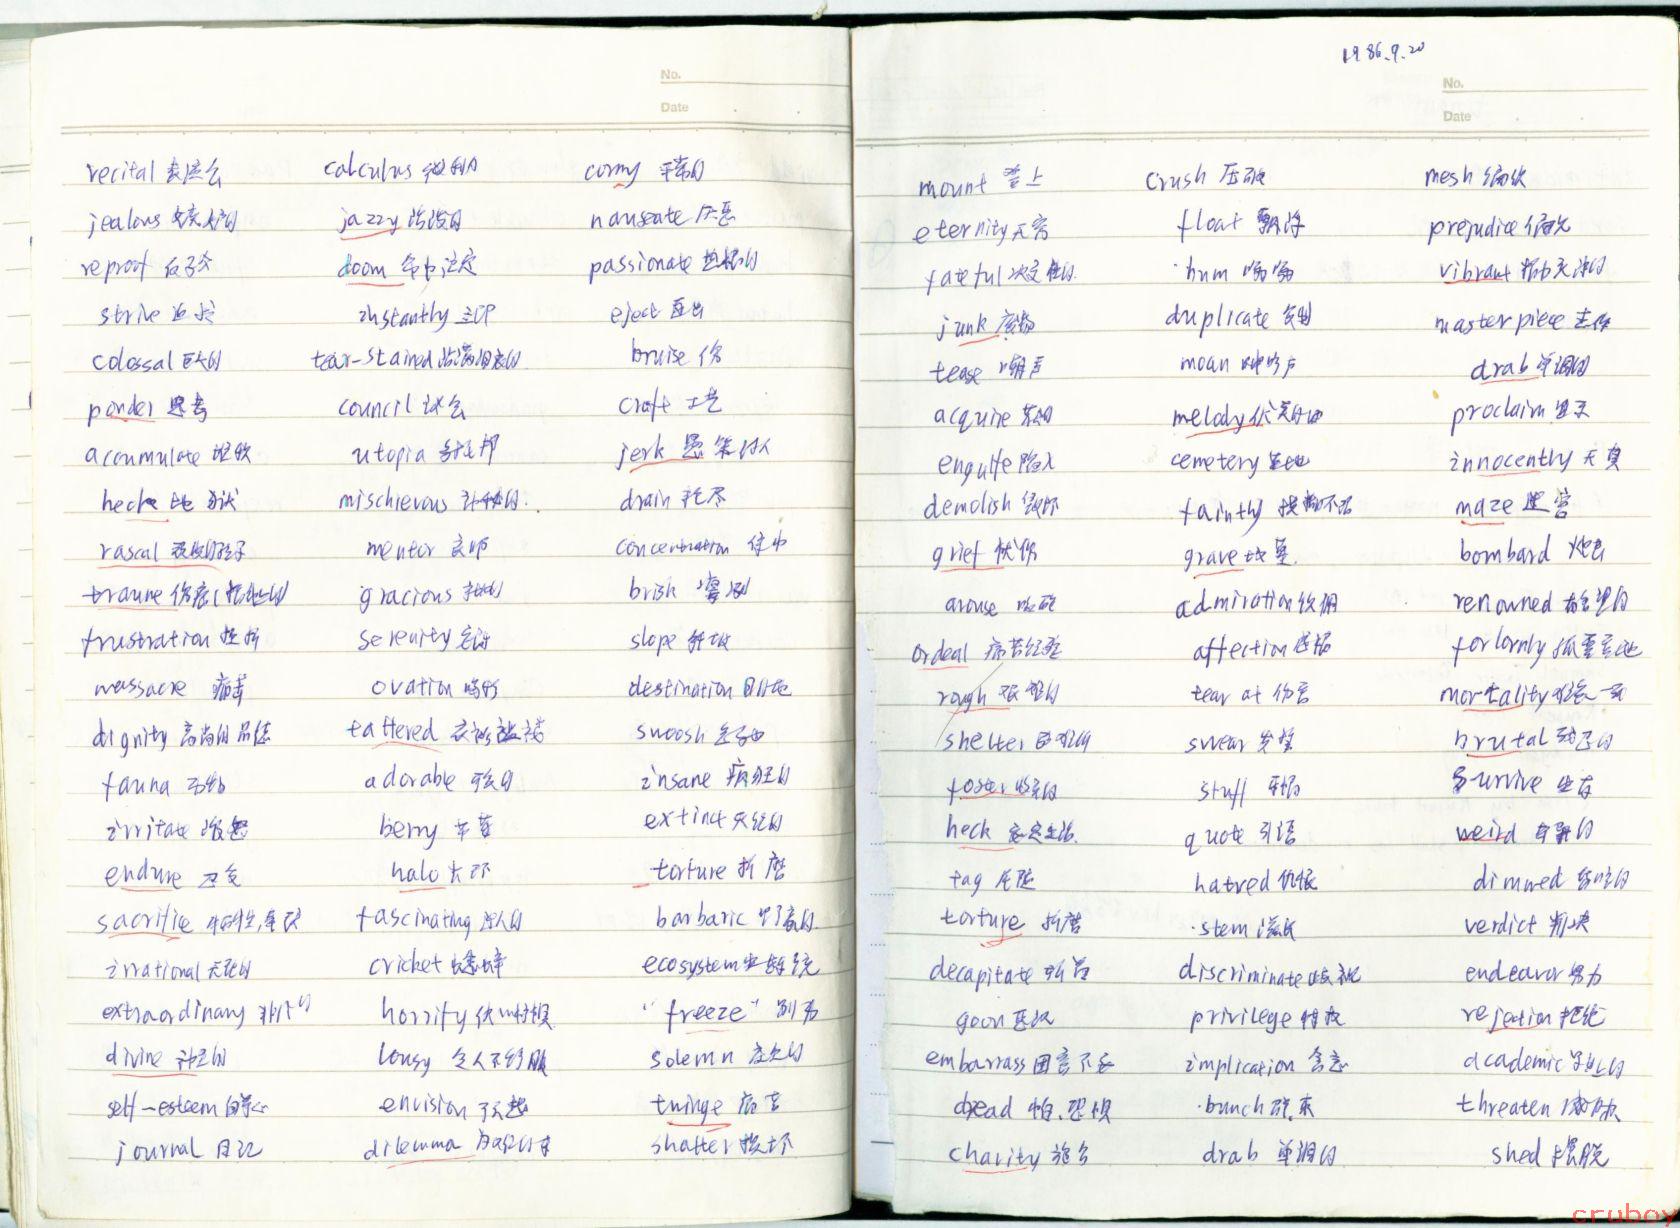 No.
Date
recital 表演会 calculus 微积分 corny 平常的
jealous 嫉妒的 jazzy 活泼的 nauseate 厌恶
reproof doom 命中注定 passionate 热情的
strive 追求 instantly 立即 eject 逐出
colossal 巨大的 tear-stained 沾满泪痕的 bruise 伤
ponder 思考 council 议会 craft 工艺
accumulate 堆积 utopia 乌托邦 jerk 愚笨的人
heck mischievous drain 耗尽
rascal mentor 良师 concentration 集中
traume gracious brisk
frustration 挫折 serenity 安详 slope 斜坡
massacre 痛击 ovation 喝彩 destination 目的地
dignity 高尚的品德 tattered 衣衫褴褛 swoosh
fauna 动物 adorable 可爱的 insane 疯狂的
irritate 激怒 berry 草莓 extinct 灭绝的
endure 忍受 halo 光环 torture 折磨
sacrifice 牺牲, fascinating 迷人的 barbaric
irrational 无理的 cricket 蟋蟀 ecosystem 生态系统
extraordinary 非凡的 horrify 使 "freeze" 别动
divine 神圣的 lousy 令人不舒服 solemn
self-esteem 自尊心 envision twinge 痛苦
journal 日记 dilemma shatter 损坏
1986.9.20
No.
Date
mount 登上 crush 压破 mesh 编织
eternity 无穷 float 飘浮 prejudice 偏见
fateful 决定性的 hum 嗡嗡 vibrant 精力充沛的
junk 废物 duplicate 复制 masterpiece 杰作
tease 嘲弄 moan 呻吟声 drab 单调的
acquire 获得 melody 优美的曲 proclaim 显示
engulfe 陷入 cemetery 墓地 innocently 天真
demolish 毁坏 faintly 模糊不清 maze 迷宫
grief 忧伤 grave 坟墓 bombard 炮击
arouse 唤醒 admiration 钦佩 renowned 有名望的
ordeal 痛苦经验 affection 感情 forlornly 孤零零地
rough 艰难的 tear at 伤害 mortality
shelter swear 发誓 brutal 残忍的
foster stuff survive 生存
heck quote 引语 weird 奇异的
tag hatred 仇恨 dimmed 暗哑的
torture 折磨 stem 滋长 verdict 判决
decapitate 斩首 discriminate 歧视 endeavor 努力
goon 恶汉 privilege 特权 rejection 拒绝
embarrass 困窘不安 implication 含意 academic 学业的
dread 怕.恐惧 bunch 一束 threaten 威胁
charity 施舍 drab 单调的 shed 摆脱
crubox